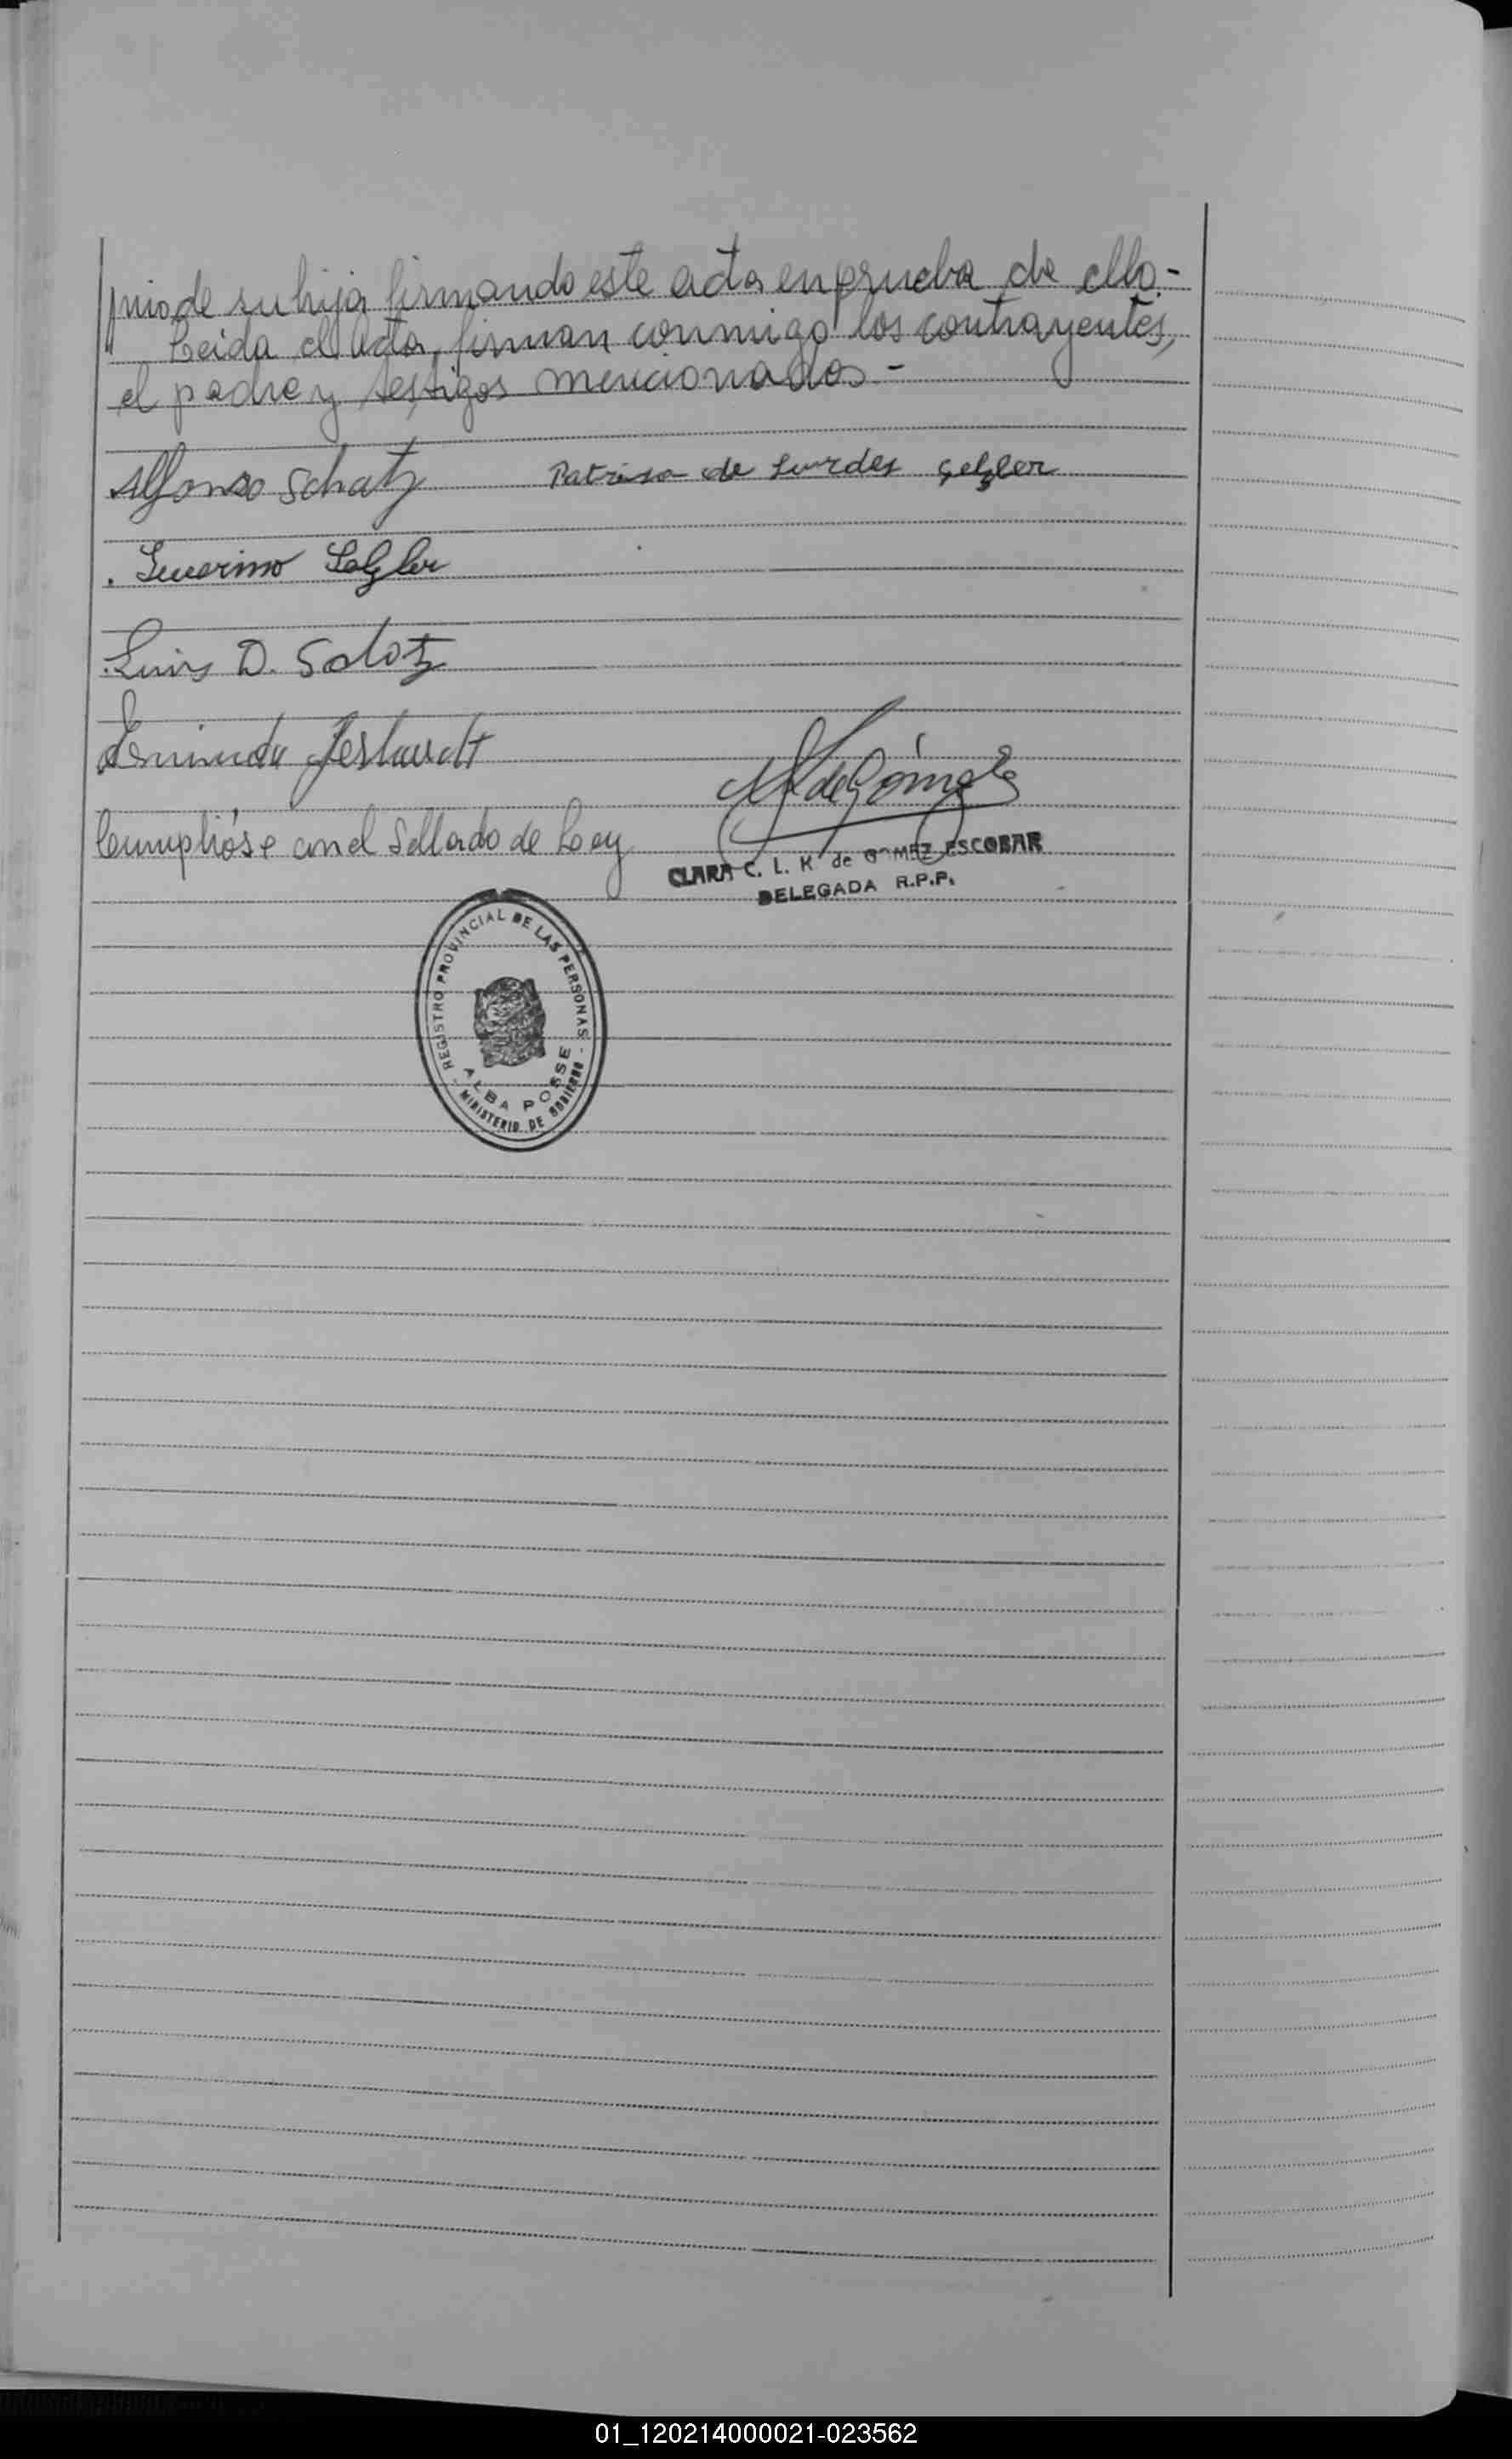 nio de su hija firmando este acta en prueba de ello.-
Leida el Acta, firman conmigo los contrayentes,
el padre y testigos mencionados.-
Alfonso Schatz Patrisa de Lurdes Selzler
Luis D. Schotz
Cumplióse con el Sellado de Ley
CLARA C. L. K de GOMEZ ESCOBAR
DELEGADA R.P.P.
REGISTRO PROVINCIAL DE LAS PERSONAS -
ALBA POSSE
MINISTERIO DE GOBIERNO -
01_120214000021-023562